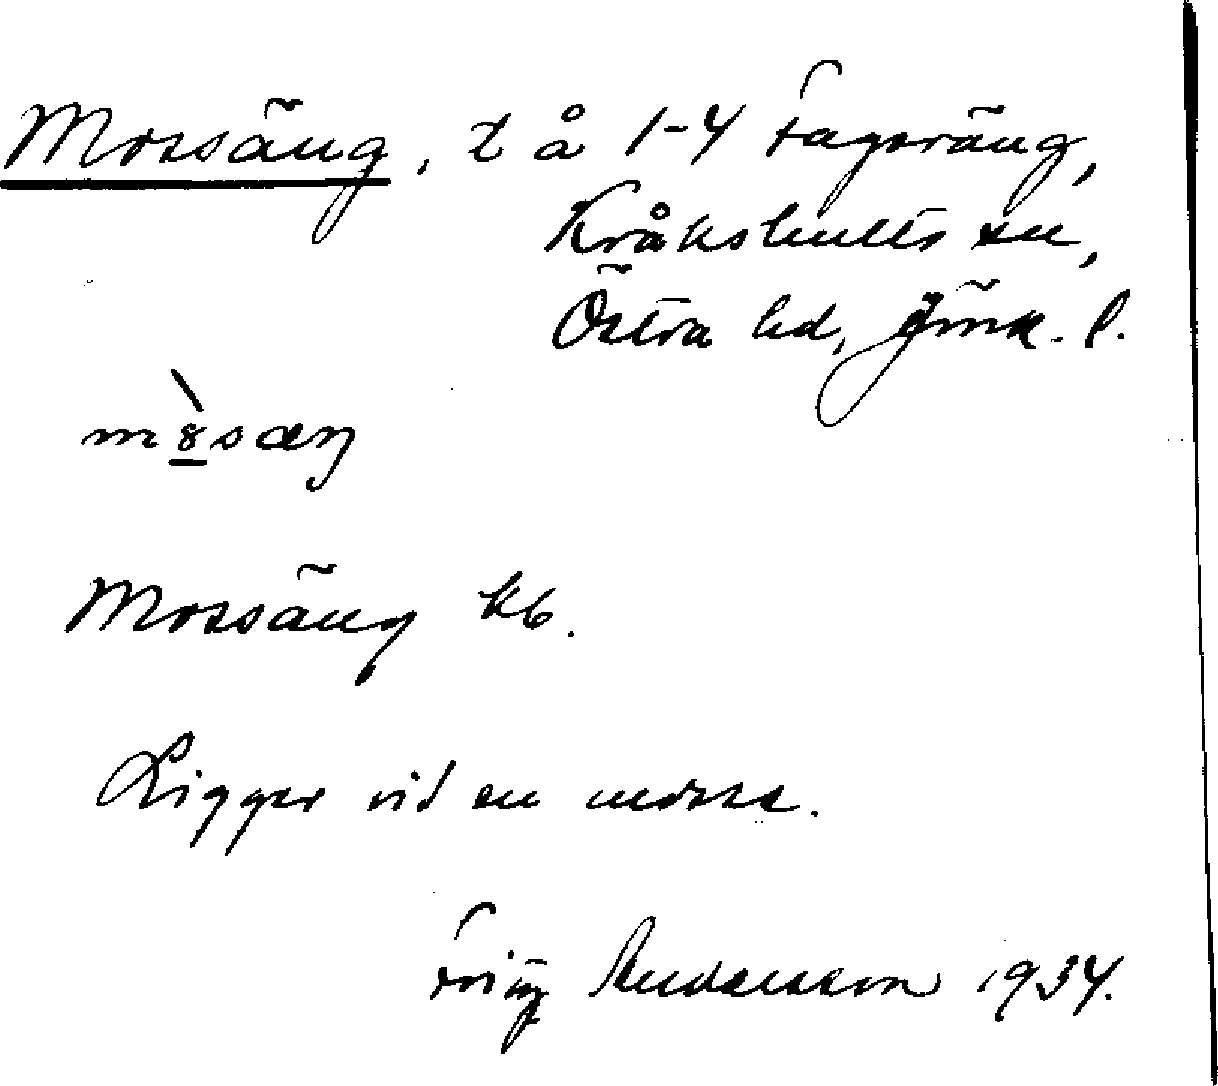 Mossäng, t å 1-4 Fageräng,
Kråkshults sn,
Östra hd, Jönk. l.
mò̲sæŋ
Mossäng kb.
Ligger vid en mosse.
Andersson 1934.